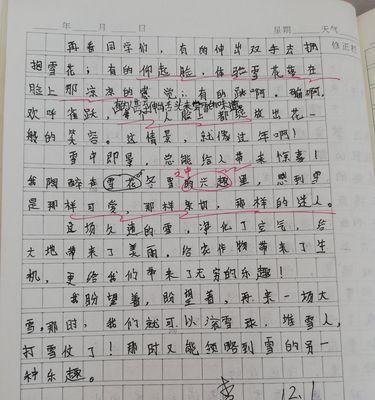 年 月 日 星期 天气
修正栏
再看同学们，有的伸出双手去拥
抱雪花；有的仰起脸，体验雪花落在
脸上那凉凉的感觉；有的跳啊，蹦啊，
有的甚至伸出舌头来尝
欢呼雀跃，人脸上都绽放出花一
般的笑容。这情景，就像过年啊！
雪中即景，总能给人带来惊喜！
我陶醉在雪花冬雪中的兴趣里，感到雪
是那样可爱，那样亲切，那样的迷人。
这场久违的雪，净化了空气，给
大地带来了美丽，给农作物带来了生
机，更给我们带来了无穷的乐趣！
我盼望着，盼望着，再来一场大
雪，那时，我们就可以滚雪球，堆雪人，
打雪仗了！那时又能领略到雪的另一
种乐趣。
12.1